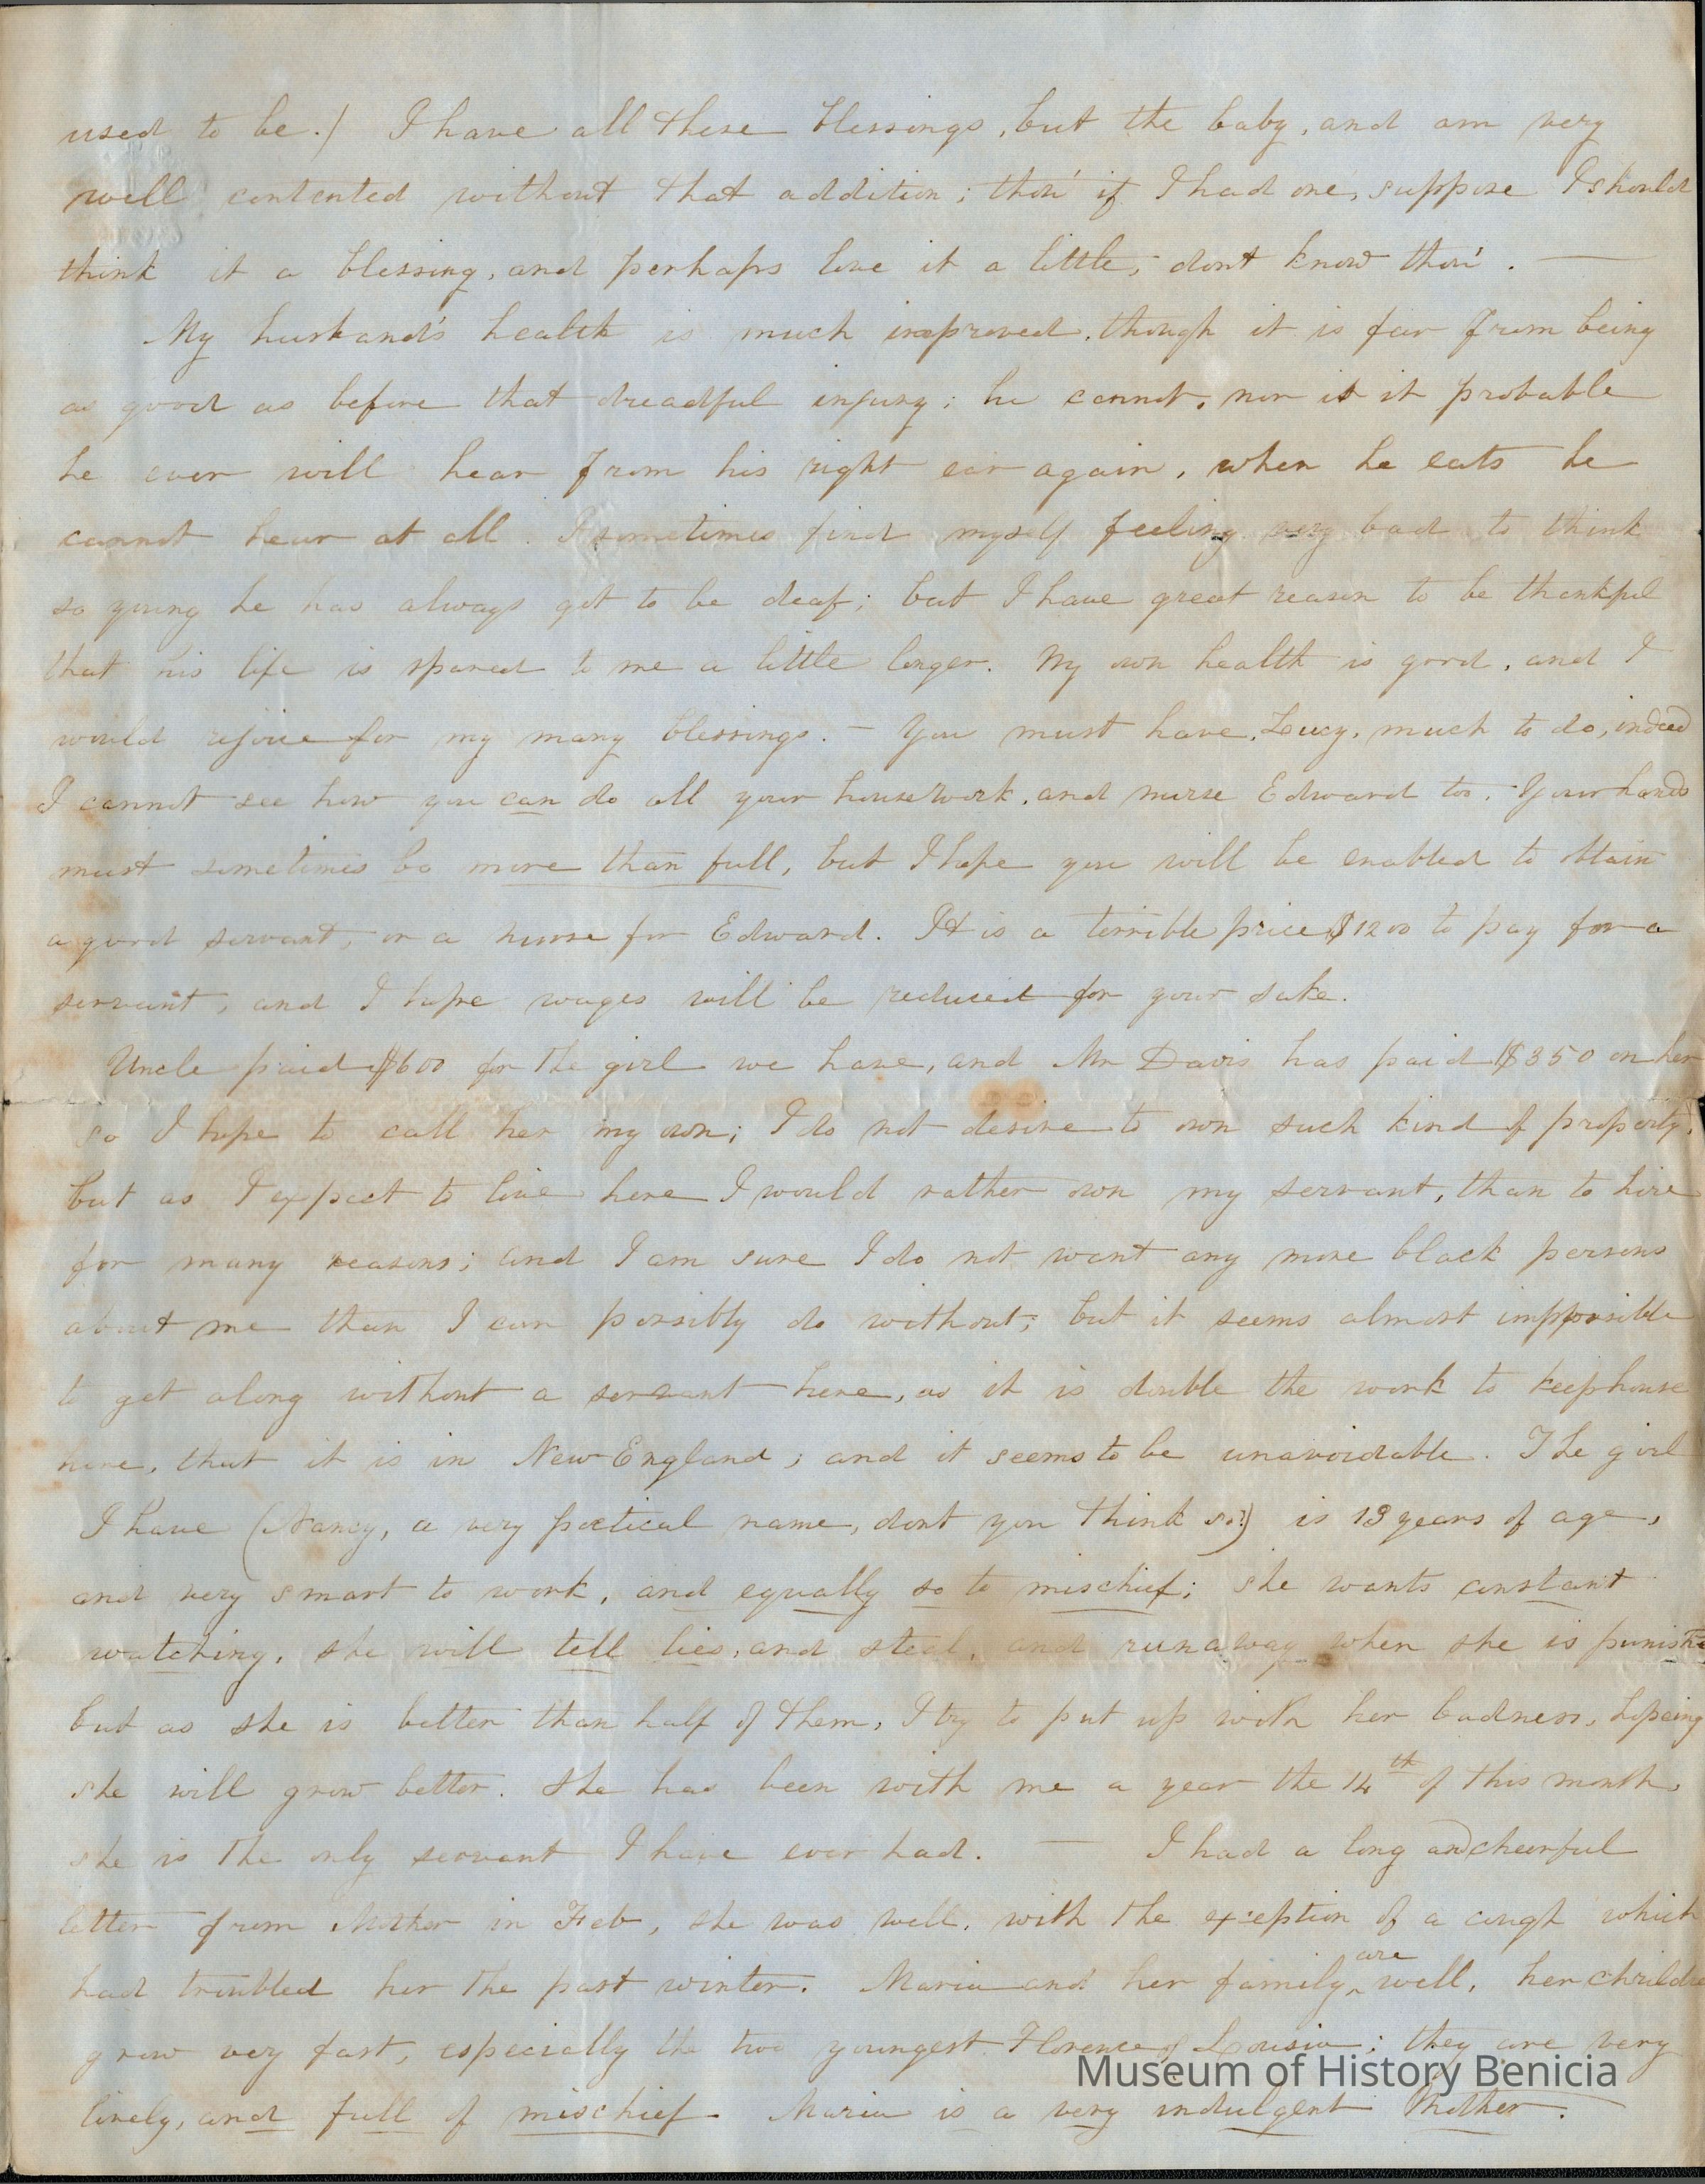 used to be.) I have all these blessings, but the baby, and am very
well contented without that addition; tho'u if I had one, suppose I should
think it a blessing, and perhaps love it a little, dont know tho'u. —
My husband's health is much improved, though it is far from being
as good as before that dreadful injury; he cannot, nor is it probable
he ever will hear from his right ear again, when he eats he
cannot hear at all. I sometimes find myself feeling very bad to think
so young he has always got to be deaf; but I have great reason to be thankful
that his life is spared to me a little longer. My own health is good, and I
would rejoice for my many blessings. — You must have, Lucy, much to do, indeed
I cannot see how you can do all your housework, and nurse Edward too. Your hands
must sometimes be more than full, but I hope you will be enabled to obtain
a good servant, or a nurse for Edward. It is a terrible price $1200 to pay for a
servant, and I hope wages will be reduced for your sake.
Uncle paid $600 for the girl we have, and Mr Davis has paid $350 on her
so I hope to call her my own; I do not desire to own such kind of property,
but as I expect to live here I would rather own my servant, than to hire
for many reasons; and I am sure I do not want any more black persons
about me than I can possibly do without; but it seems almost impossible
to get along without a servant here, as it is double the work to keephouse
here, that it is in New England; and it seems to be unavoidable. The girl
I have (Nancy, a very poetical name, dont you think so?) is 13 years of age,
and very smart to work, and equally so to mischief; she wants constant
watching, she will tell lies, and steal, and runaway when she is punishe
but as she is better than half of them, I try to put up with her badness, hopeing
she will grow better. She has been with me a year the 14th of this month,
she is the only servant I have ever had. — I had a long and cheerful
letter from Mother in Feb, she was well, with the exception of a cough which
had troubled her the past winter. Maria and her family are well, her childre
grow very fast, especially the two youngest Florence & Lousia; they are very
lively, and full of mischief. Maria is a very indulgent Mother.
Museum of History Benicia